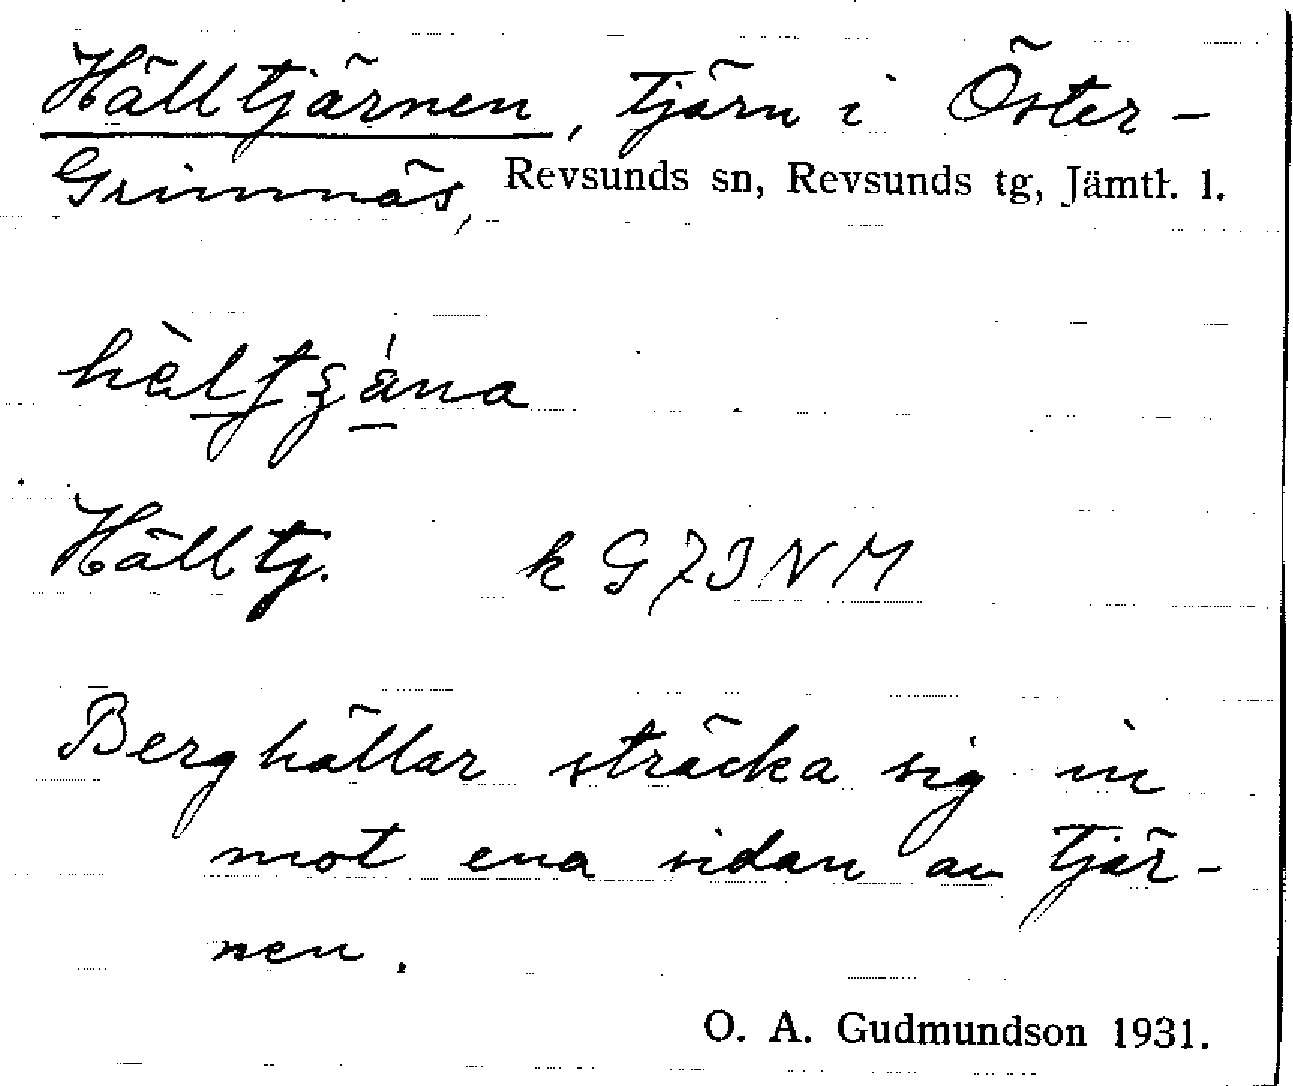 Hälltjärnen, tjärn i Öster-
Grimnäs, Revsunds sn, Revsunds tg, Jämtl. l.
Hälltj. k G73NM
Berghällar sträcka sig in
mot ena sidan av tjär-
nen.
O. A. Gudmundson 1931.